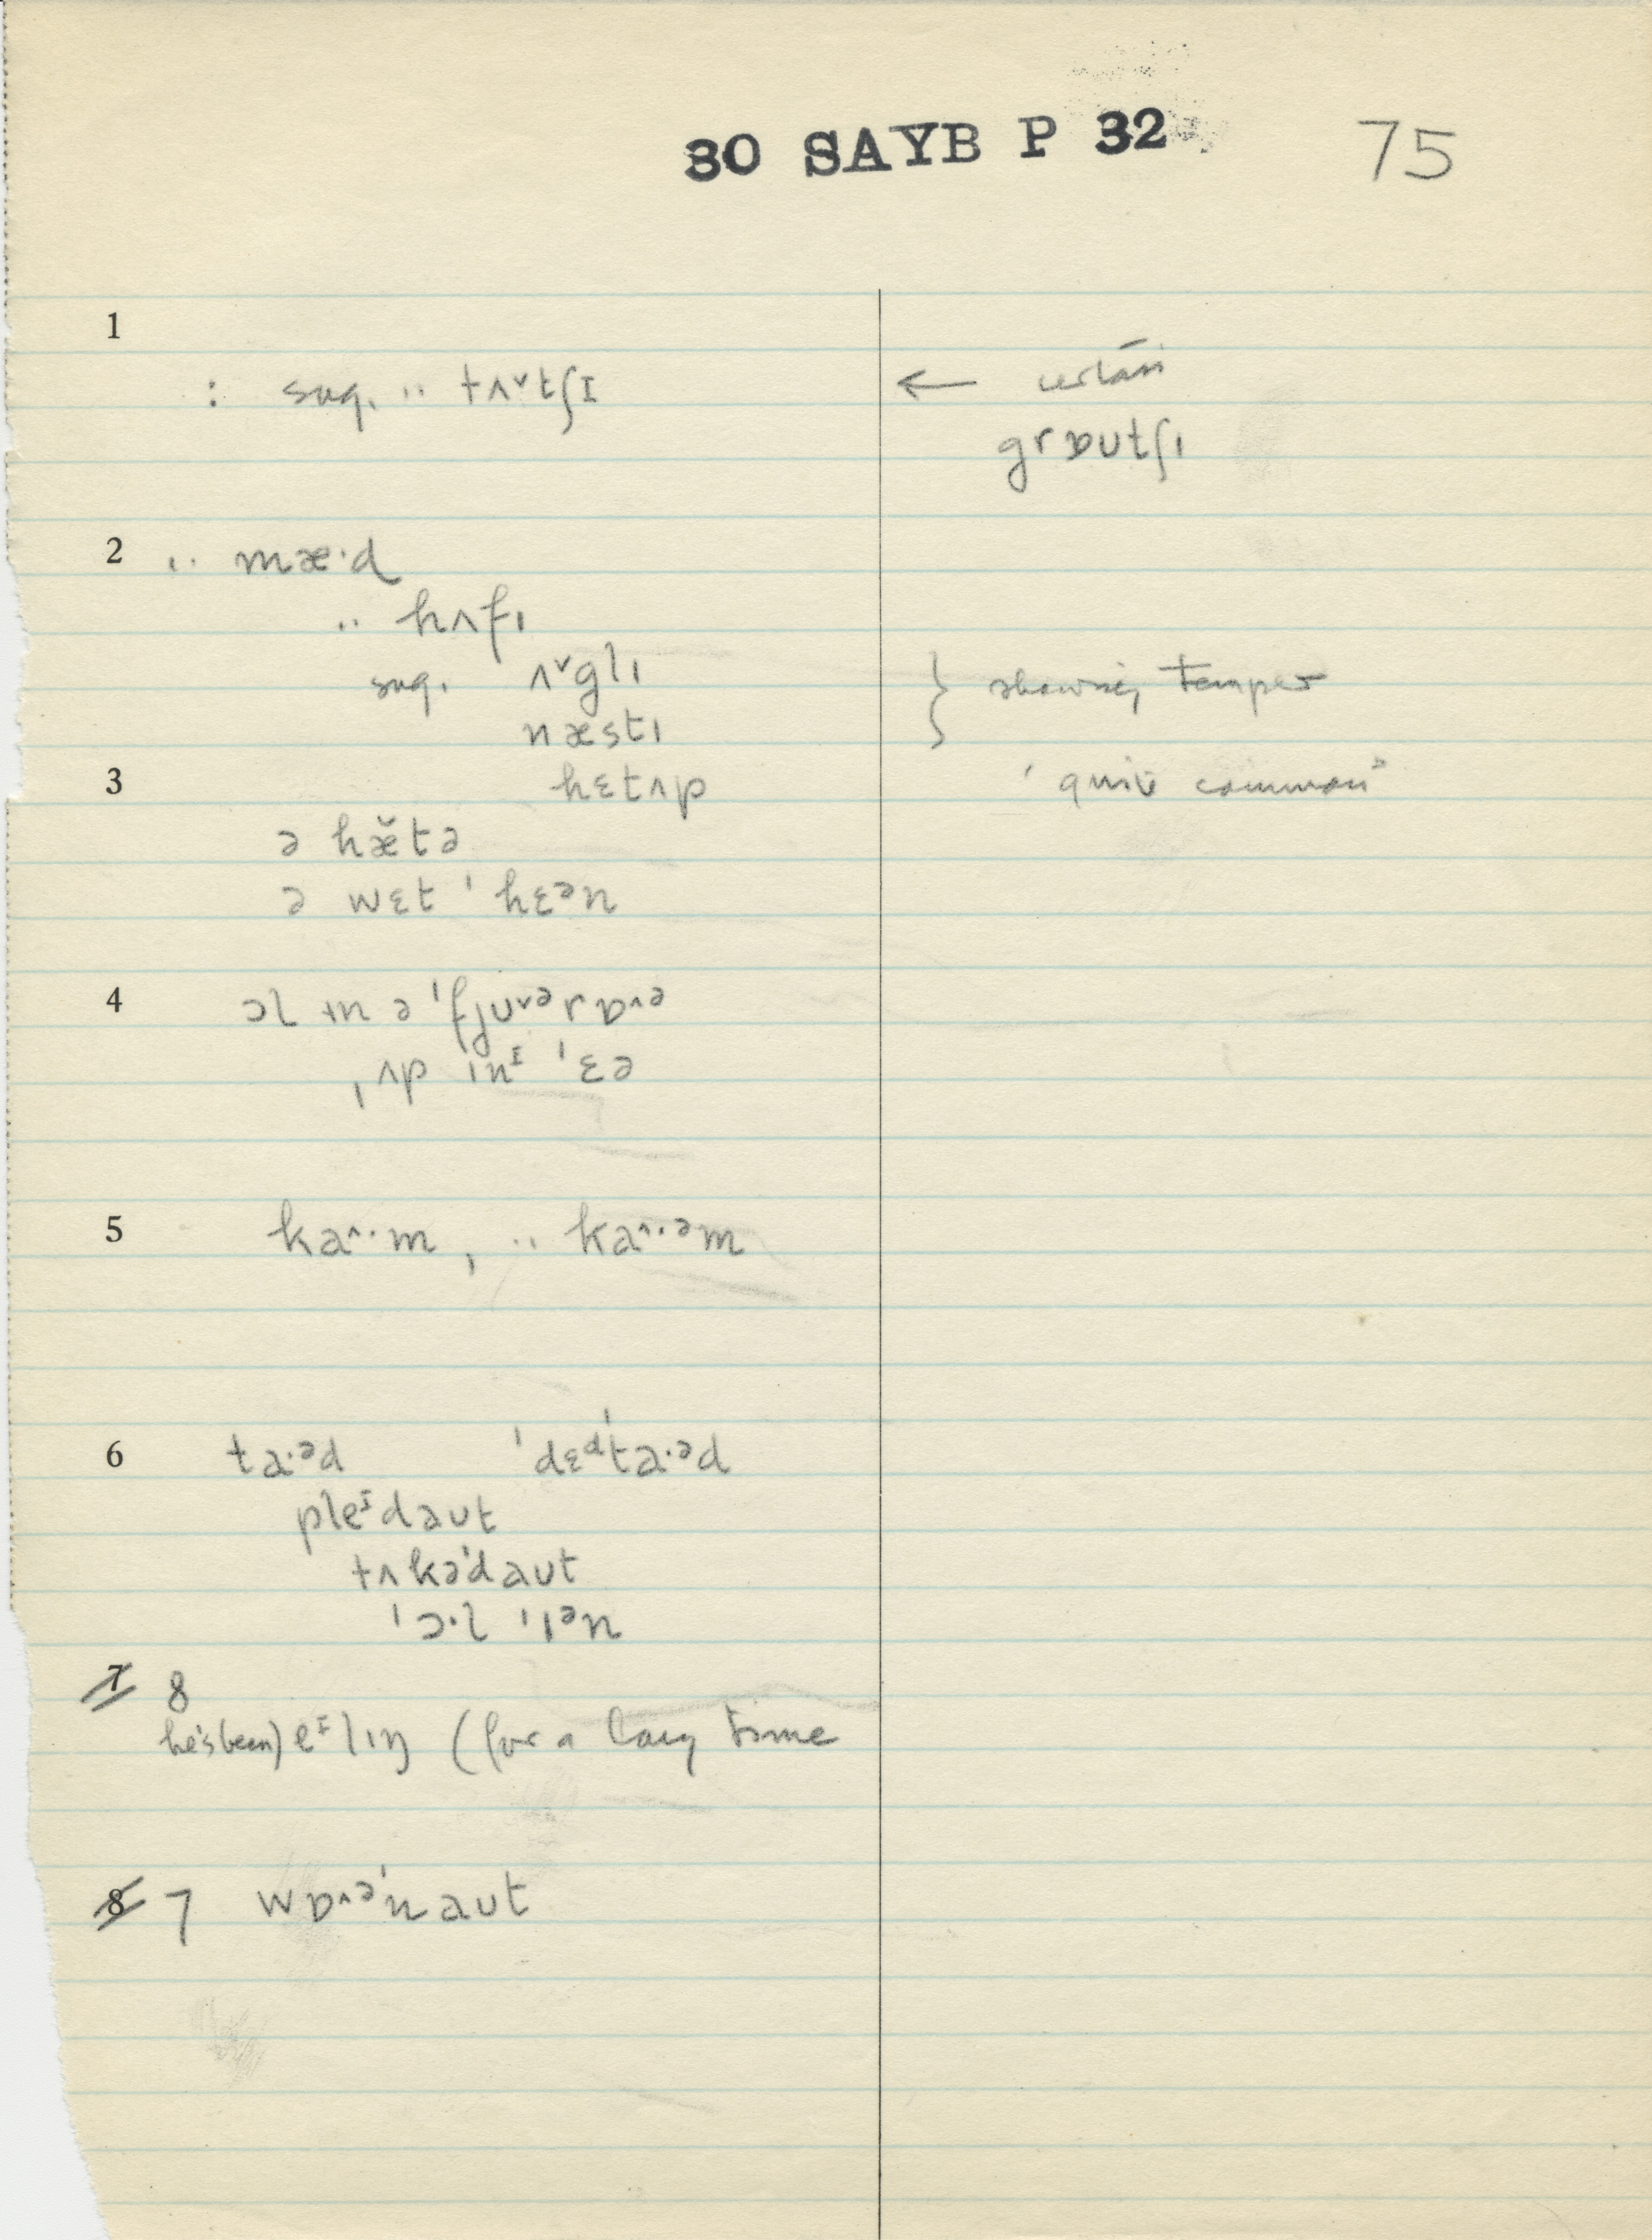 30 SAYB P 32 75
1
: sug. ·· tʌ˅tʃɪ ←
grɒutʃı
2 ·· mæ·d
·· hʌfı
sug. ʌ˅glı } showing temper
næstı
3 hɛtʌp ' quite common"
ə hæ̆tə
ə wɛt ˈhɛᵊn
4 ɔl ın ə ˈfjʊ˅ᵊrɒ˄ə
ˌʌp ınᶦ ˈɛə
5 ka˄·m , ·· ka˄·ᵊm
6 ta·ᵊd ˈdɛᵈˈta·ᵊd
pleᶦdaut
tʌkəˈdaut
ˈɔ·l ˈıᵊn
7 8
he's been) eᶦlıŋ (for a long time
8 7 wɒ˄ᵊˈnaut